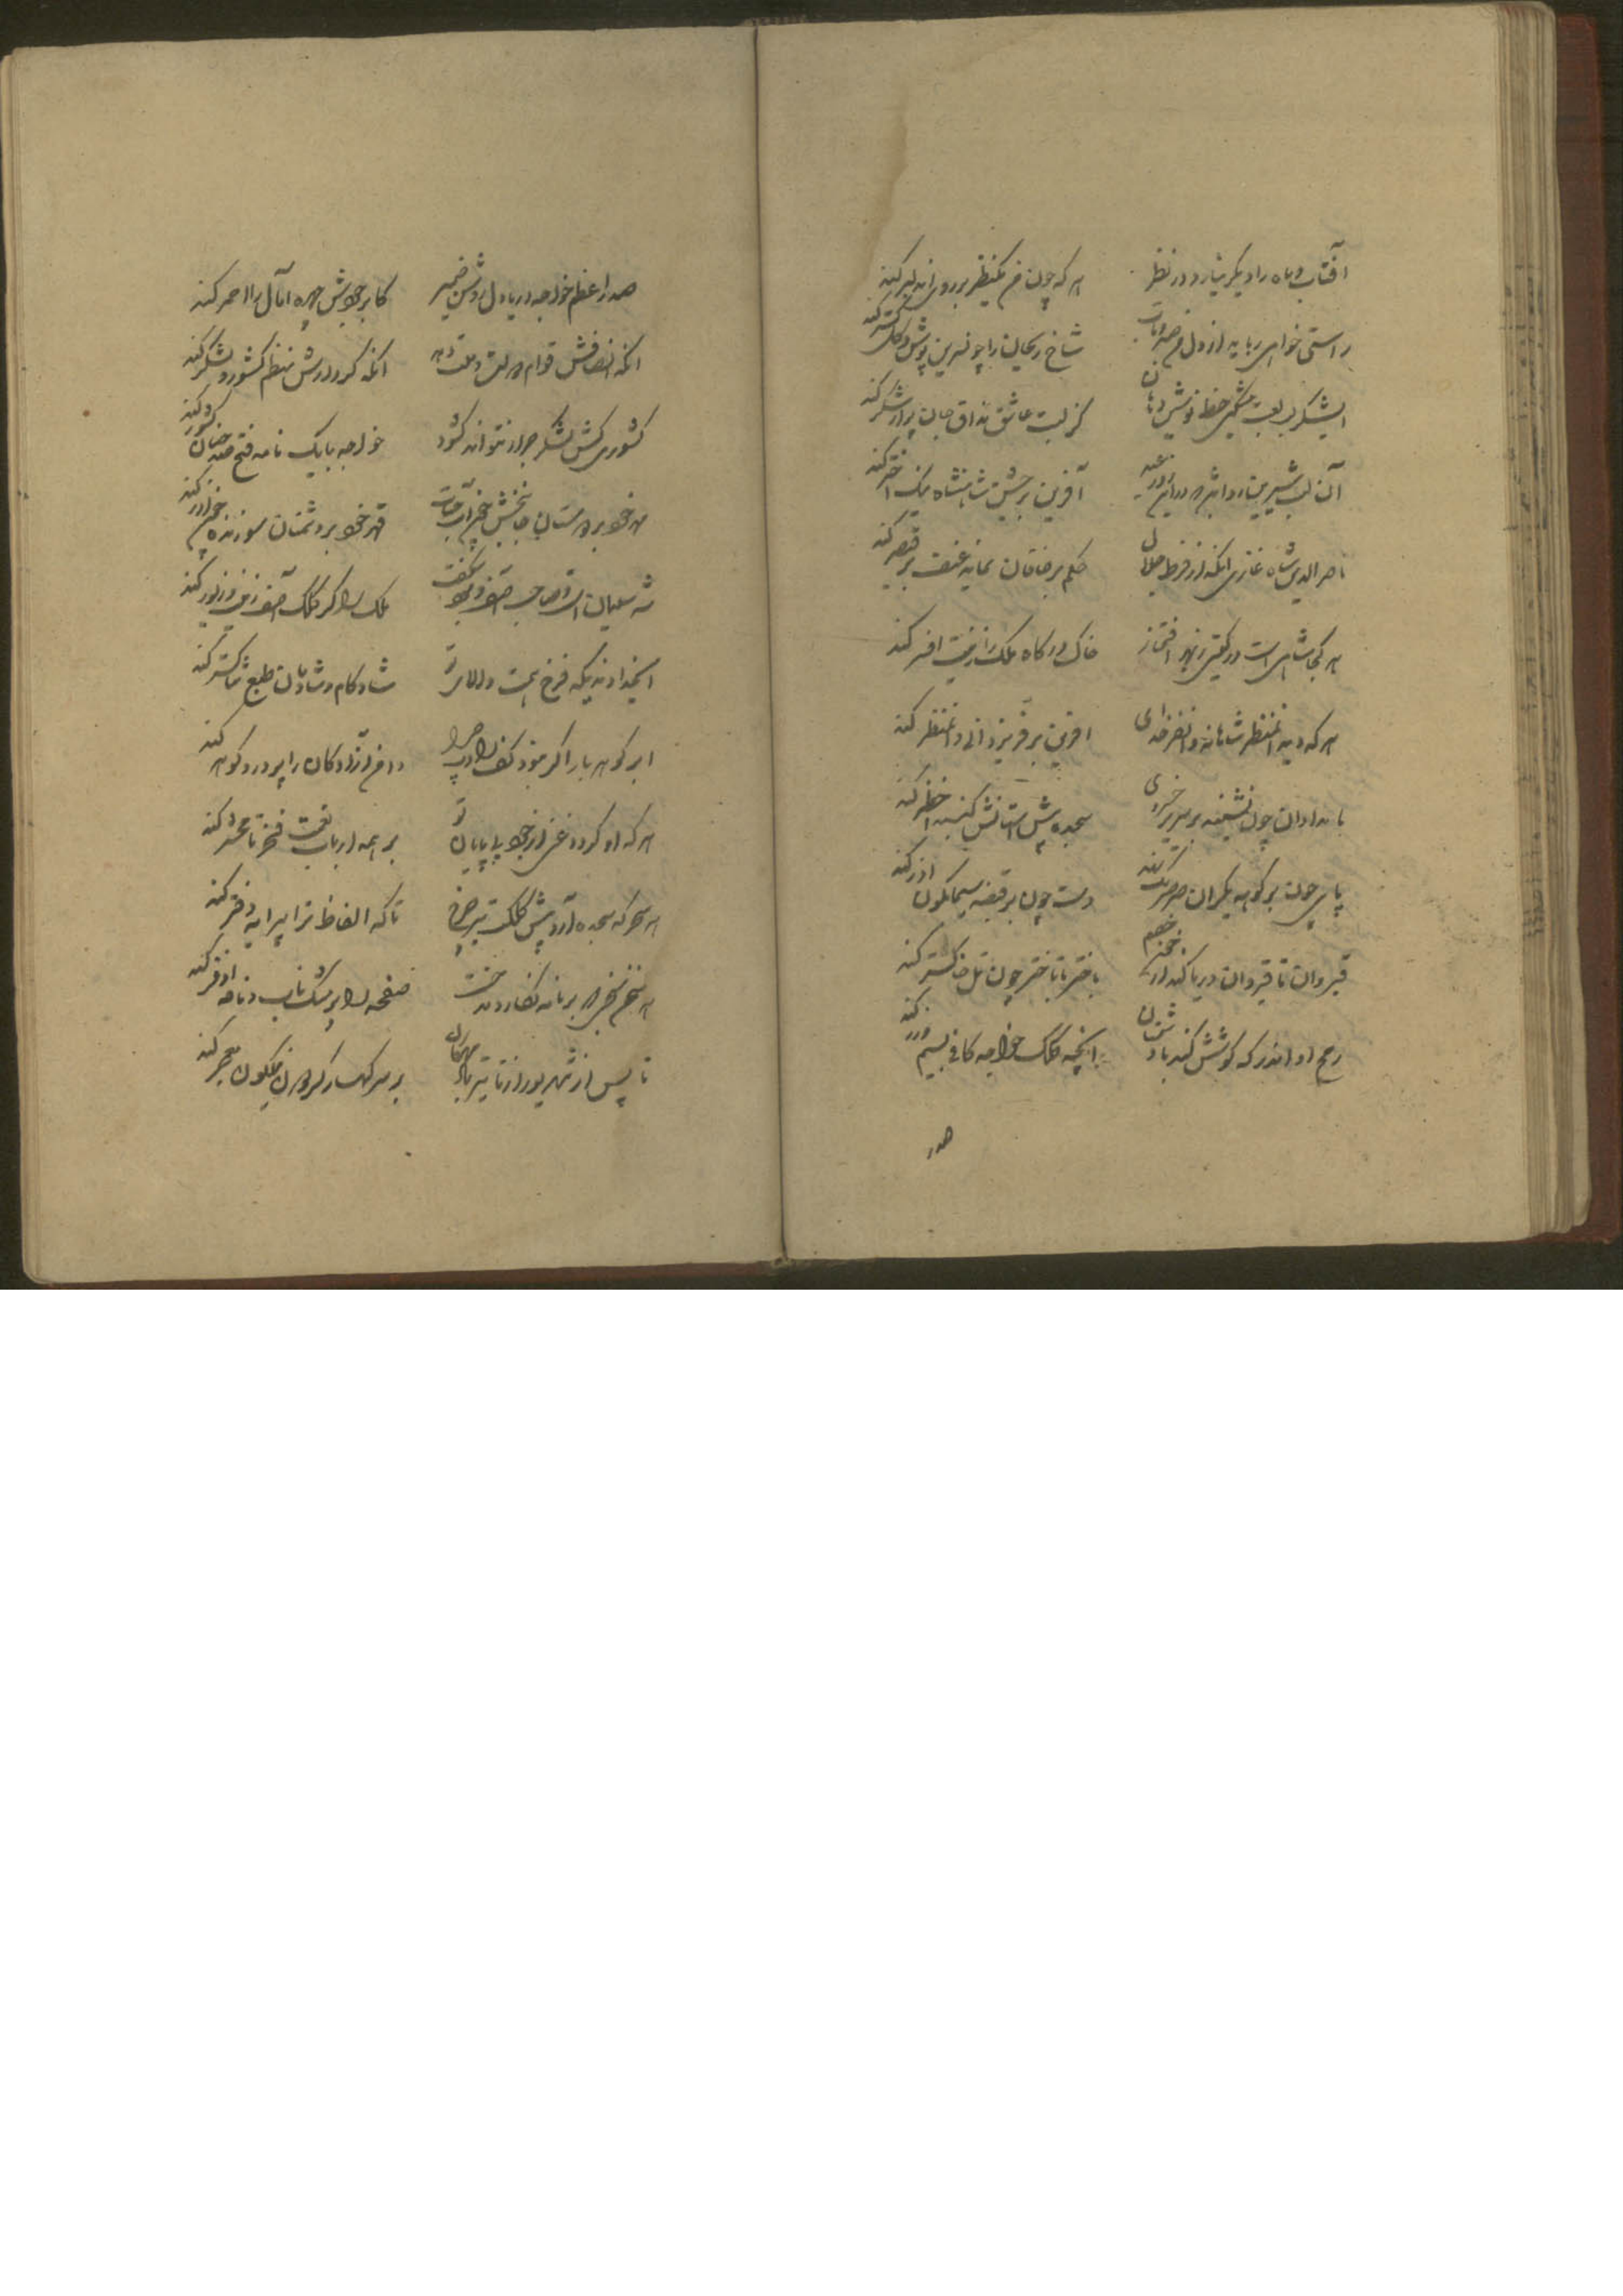 آفتاب و ماه را دیگر نیارد در نظر
هر که چون من یکنظر بر روی آن دلبر کند
راستی خواهی رباید از دل من صبر و تاب
شاخ ریحان را چو نسرین پوش و گل کستر کند
کز لبت عاشق مذاق جان پر از شکر کند
آن لب شیرین
آفرین بر جشن شاهنشاه نیک اختر کند
ناصرالدین شاه غازی انکه از فرط جلال
حکم بر خاقان نماید عنف بر قیصر کند
هر کجا شاهی است در گیتی ز بهر افتخار
خاک درگاه ملک را زینت افسر کند
هر که دید آنمنظر شاهانه و آنفر خدای
افرین بر فر یزدانی و انمنظر کند
بامدادان چون نشیند بر سریر خسروی
سجده پیش استانش گنبد اخضر کند
پای چون بر کوهه یکران صرصرتک نهد
دست چون بر قبضه سیمابگون اذر کند
قیروان تا قیروان دریا کند از خنجر خصم
باختر تا باختر چون تل خاکستر کند
رمح او اندر که کوشش کند با دشمنان
انچه کلک خواجه کافی بسیم و زر کند
صدر
صدر اعظم خواجه دریا دل روشن ضمیر
کابر جودش چهره آمال را احمر کند
انکه انصافش قوام دولت و ملت دهد
انکه کردارش منظم کشور و لشکر کند
کشوری کش لشکر جرار نتواند گشود
خواجه با یک نامه فتح صد چنان کشور کند
مهر خود بر دوستان جانبخش چون آب حیات
قهر خود بر دشمنان سوزنده چون اذر کند
شه سلیمان است و صاحب آصف و نبود شگفت
ملک را گر کلک آصف زینت و زیور کند
ایخداوندیکه فرخ همت والای تو
شاد کام و شادمان طبع ثناگستر کند
ابر گوهر بار اگر نبود کفت را چرا
دامن آزادگان را پر در و گوهر کند
هر که او گردد غنی از جود بی پایان تو
بر همه ارباب نعمت فخر تا محشر کند
هر سحرگه سجده آرد پیش کلکت تیر چرخ
تا که الفاظ ترا پیرایه دفتر کند
صفحه را پر مشک ناب و نافه اذفر کند
تا پس از شهریور از تاثیر باد مهرگان
بر سر کهسار گردون نیلگون معجر کند